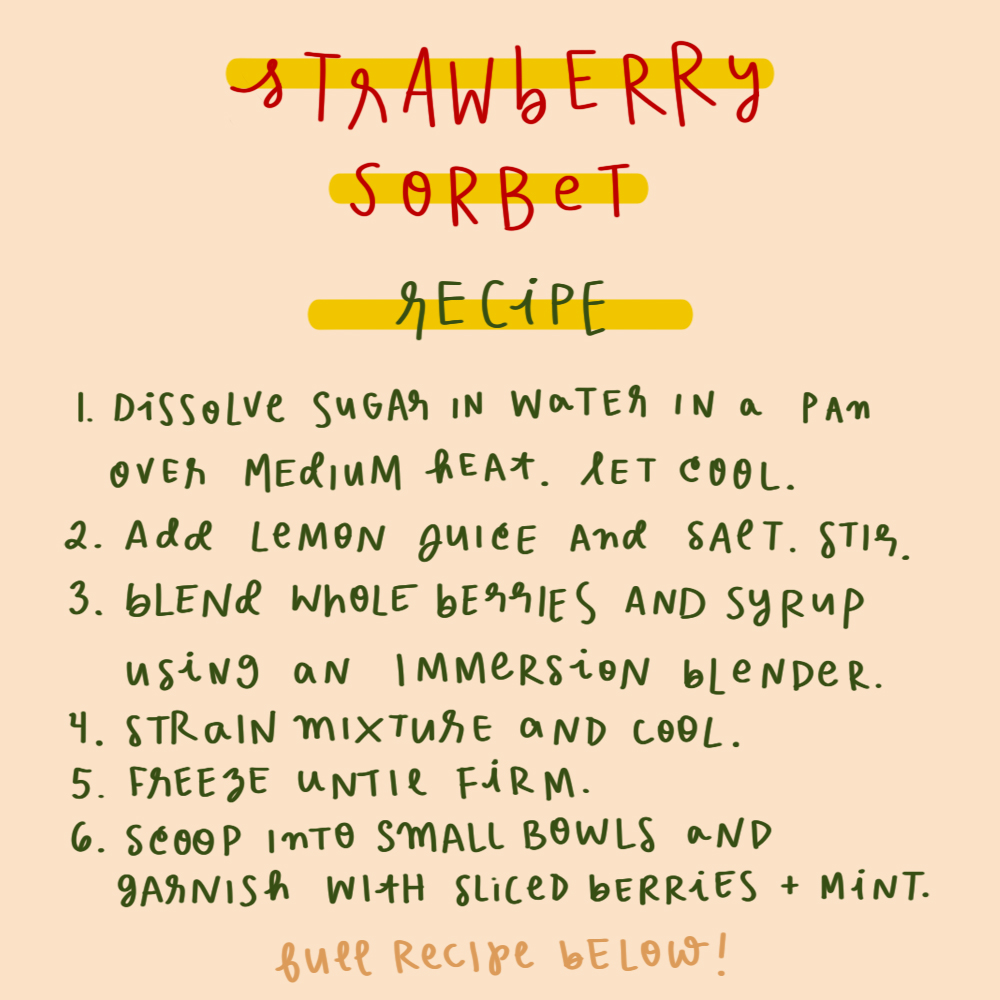 STRAWBERRY
SORBET
RECIPE
1. DISSOLVE SUGAR IN WATER IN A PAN
OVER MEDIUM HEAT. LET COOL.
2. ADD LEMON JUICE AND SALT. STIR.
3. BLEND WHOLE BERRIES AND SYRUP
USING AN IMMERSION BLENDER.
4. STRAIN MIXTURE AND COOL.
5. FREEZE UNTIL FIRM.
6. SCOOP INTO SMALL BOWLS AND
GARNISH WITH SLICED BERRIES + MINT.
FULL RECIPE BELOW!